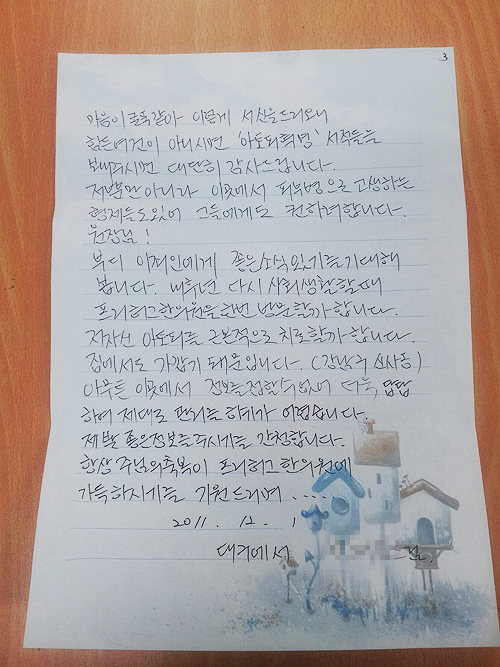 3
마음이 굴뚝같아 이렇게 서신을 드리오니
힘든여건이 아니시면 '아토피혁명' 서적들을
보내주시면 대단히 감사드립니다.
저뿐만아니라 이곳에서 피부병으로 고생하는
형제들도있어 그들에게도 권하려합니다.
원장님!
부디 이죄인에게 좋은소식있기를기대해
봅니다. 내후년 다시 사회생활할때
프리허그한의원을한번 방문할까합니다.
저자신 아토피를 근본적으로 치료할까합니다.
집에서도 가깝기 때문입니다. (강남구 신사동)
아무튼 이곳에서 정보를접할수없어 더욱 답답
하여 제대로 관리를 하기가 어렵습니다.
제발 좋은정보를주시기를 간청합니다.
항상 주님의축복이 프리허그 한의원에
가득하시기를 기원드리며.....
2011. 12. 1
대구에서